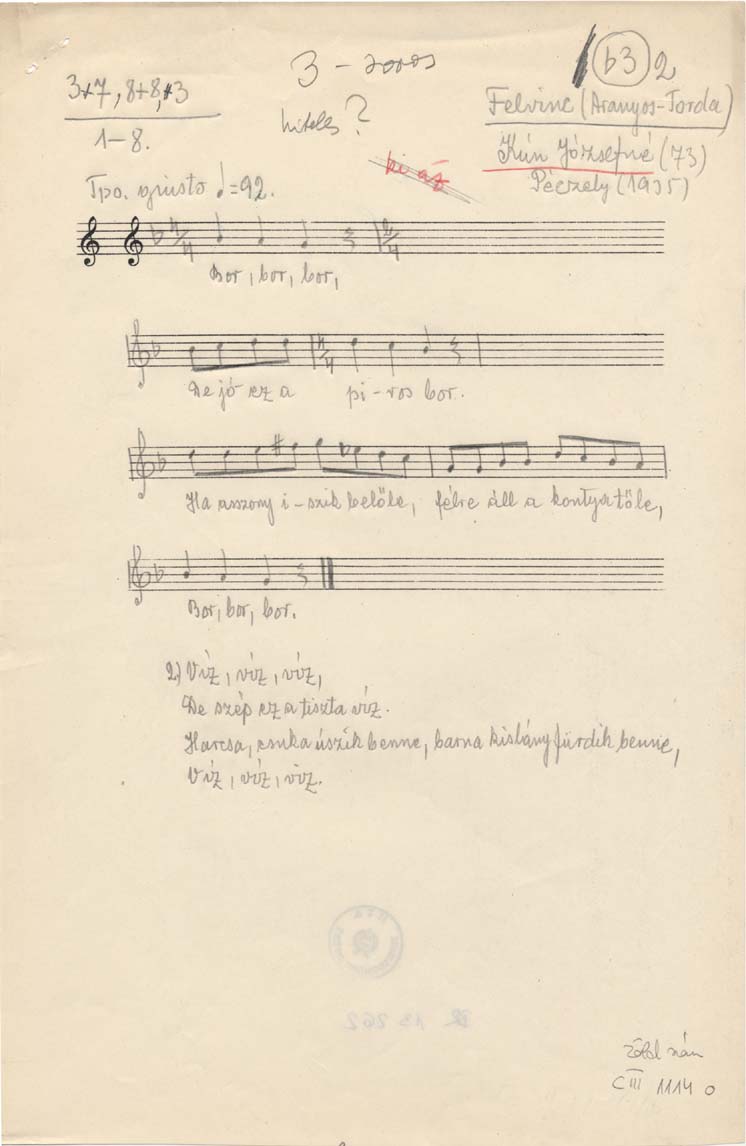 3 - soros
b3 2
3+7, 8+8, +3
1-8.
hiteles?
Felvinc (Aranyos-Torda)
Kún Józsefné (73)
Péczely (1935)
ki az
Tpo. giusto ♩=92.
4/4 2/4
Bor, bor, bor,
4/4
De jó ez a pi-ros bor.
Ha asszony i-szik belőle, félre áll a kontya tőle,
Bor, bor, bor.
2) Víz, víz, víz,
De szép ez a tiszta víz.
Harcsa, csuka úszik benne, barna kislány fürdik benne,
Víz, víz, víz.
C III 1114 0